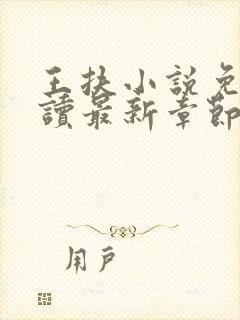 王扶小說免
讀最新章節
用戶